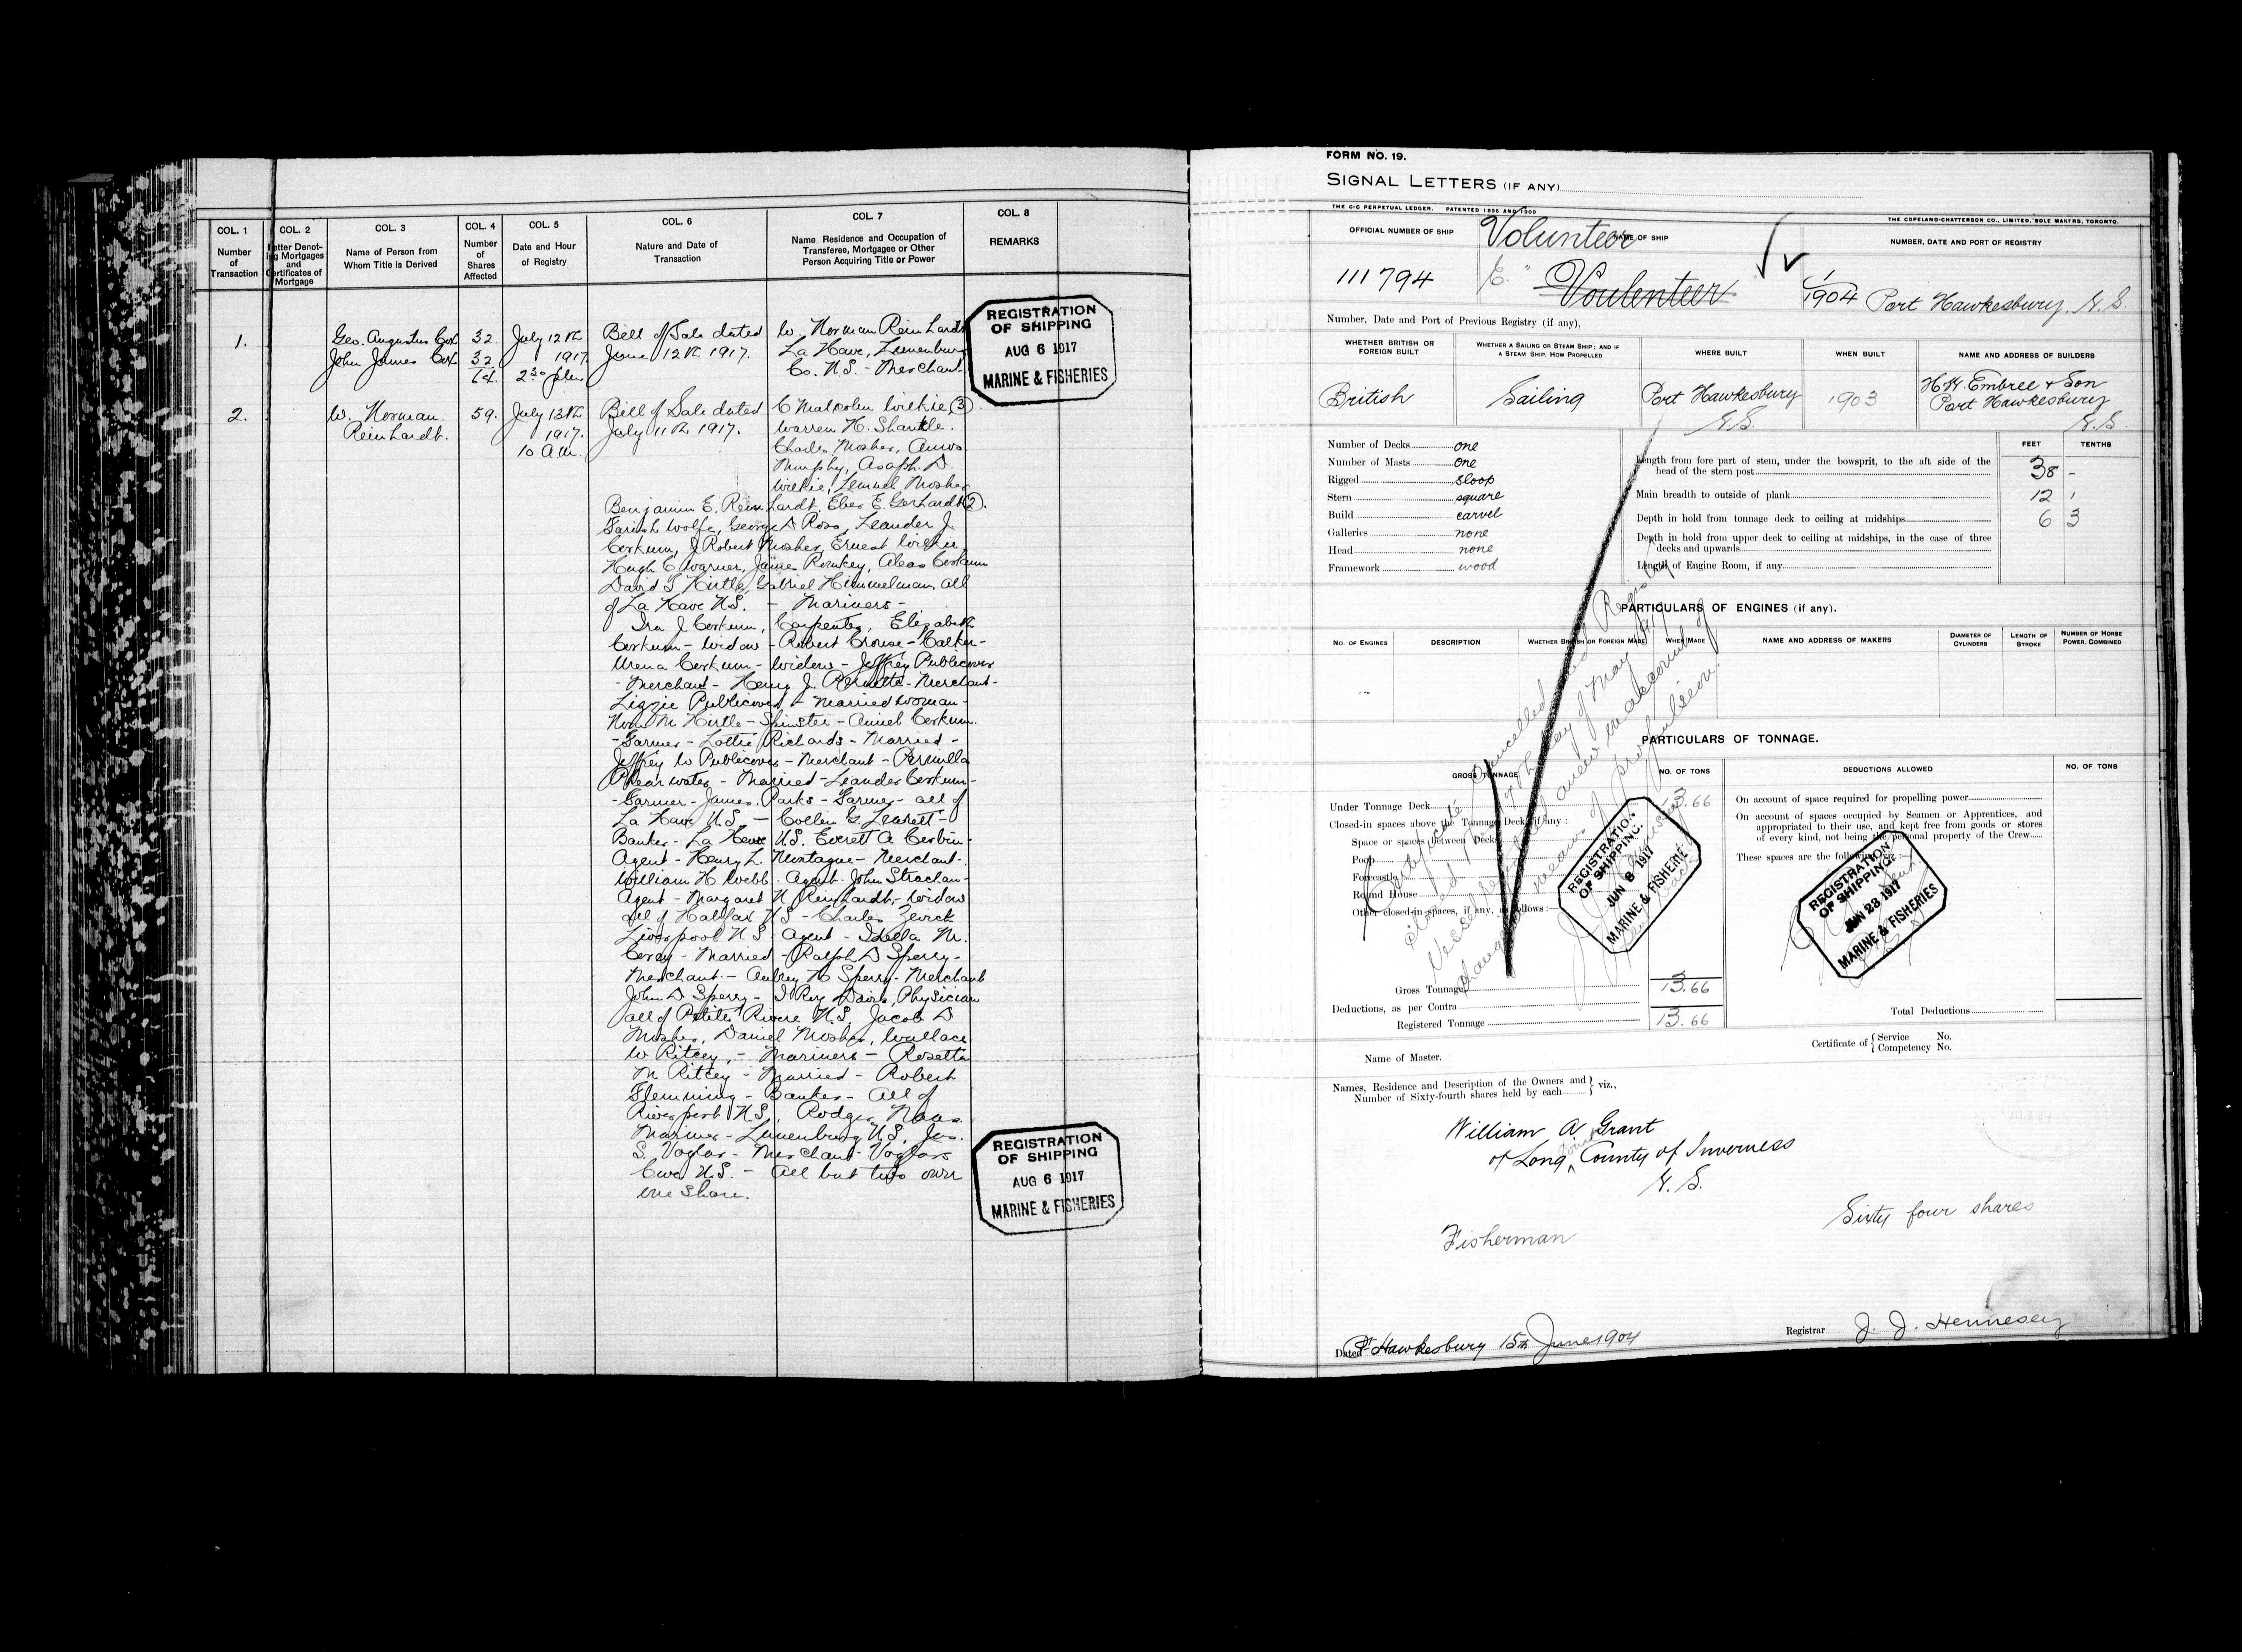 COL. 1
Number
of
Transaction
COL. 2
Letter Denot-
ing Mortgages
and
Certificates of
Mortgage
COL. 3
Name of Person from
Whom Title is Derived
COL. 4
Number
of
Shares
Affected
COL. 5
Date and Hour
of Registry
COL. 6
Nature and Date of
Transaction
COL. 7
Name Residence and Occupation of
Transferee, Mortgagee or Other
Person Acquiring Title or Power
COL. 8
REMARKS
1.
Geo. Augustus Cox
John James Cox
32
32
64.
July 12th
1917
2.30 p.m.
Bill of Sale dated
June 12th 1917.
W. Norman Reinhardt
La Have, Lunenburg
Co. N.S. - Merchant.
REGISTRATION
OF SHIPPING
AUG 6 1917
MARINE & FISHERIES
2.
W. Norman
Reinhardt.
59.
July 13th
1917.
10 a.m.
Bill of Sale dated
July 11th 1917.
C Malcolm Wilkie (3)
Warren H. Shankle.
Charles Mosher, Amos
Murphy, Asaph D.
Wilkie, Lemuel Mosher
Benjamin E. Reinhardt, Eber E. Gerhardt (2).
Parish Wolfe, George D Ross, Leander J
Corkum, J Robert Mosher, Ernest Wilkie
Hugh C Warner, James Romkey, Aleas Corkum
David S Hirtle, Gabriel Himmelman, all
of La Have N.S. - Mariners -
Ira J Corkum, Carpenter, Elizabeth
Corkum - Widow - Robert Crouse - Calker -
Urena Corkum - Widow - Jeffrey Publicover
- Merchant - Henry J. - Merchant -
Lizzie Publicover - Married Woman -
Nora M Hirtle - Spinster - Corkum.
- Farmer - Lottie Richards - Married -
Jeffrey W Publicover - Merchant - Permilla
- Married - Leander Corkum -
- Farmer - James Parks - Farmer - all of
La Have N.S. -
Banker - La Have N.S. Everett A
Agent - Henry L. Montague - Merchant.
William H Webb. Agent. John Strachan -
Agent - Margaret N Reinhardt, Widow
all of Halifax N.S - Charles Zwick
Liverpool N.S. Agent - Isella M.
- Married - Ralph D Sperry -
Merchant - Aubrey H Sperry - Merchant
John D Sperry - I Roy Davis, Physician
all of Petite Riviere N.S. Jacob D
Mosher, Daniel Mosher, Wallace
W Ritcey, - Mariners - Rosetta
M Ritcey - Married - Robert
Flemming - Banker - All of
Riverport N.S. Rodger Naas
Mariner - Lunenburg N.S. Jas.
S. Voglar - Merchant Voglars
Cove N.S. - All but two own
one share.
REGISTRATION
OF SHIPPING
AUG 6 1917
MARINE & FISHERIES
FORM NO. 19.
SIGNAL LETTERS (IF ANY)
THE C-C PERPETUAL LEDGER. PATENTED 1896 AND 1900
THE COPELAND-CHATTERSON CO., LIMITED, SOLE MAKERS, TORONTO.
OFFICIAL NUMBER OF SHIP
NAME OF SHIP
NUMBER, DATE AND PORT OF REGISTRY
111794
Volunteer
Voulenteer
1
1904 Port Hawkesbury. N.S.
Number, Date and Port of Previous Registry (if any),
WHETHER BRITISH OR
FOREIGN BUILT
WHETHER A SAILING OR STEAM SHIP; AND IF
A STEAM SHIP, HOW PROPELLED
WHERE BUILT
WHEN BUILT
NAME AND ADDRESS OF BUILDERS
British
Sailing
Port Hawkesbury
N.S.
1903
H.W. Embree & Son
Port Hawkesbury
N.S.
Number of Decks one
Number of Masts one
Rigged sloop
Stern square
Build carvel
Galleries none
Head none
Framework wood
FEET TENTHS
Length from fore part of stem, under the bowsprit, to the aft side of the
head of the stern post 38 -
Main breadth to outside of plank 12 1
Depth in hold from tonnage deck to ceiling at midships 6 3
Depth in hold from upper deck to ceiling at midships, in the case of three
decks and upwards
Length of Engine Room, if any
PARTICULARS OF ENGINES (if any).
NO. OF ENGINES
DESCRIPTION
WHETHER BRITISH OR FOREIGN MADE
WHEN MADE
NAME AND ADDRESS OF MAKERS
DIAMETER OF
CYLINDERS
LENGTH OF
STROKE
NUMBER OF HORSE
POWER, COMBINED
PARTICULARS OF TONNAGE.
GROSS TONNAGE
NO. OF TONS
DEDUCTIONS ALLOWED
NO. OF TONS
Under Tonnage Deck 13.66
Closed-in spaces above the Tonnage Deck, if any :
Space or spaces between Decks
Poop
Forecastle
Round House
Other closed-in spaces, if any, as follows :
Gross Tonnage 13.66
Deductions, as per Contra
Registered Tonnage 13.66
On account of space required for propelling power
On account of spaces occupied by Seamen or Apprentices, and
appropriated to their use, and kept free from goods or stores
of every kind, not being the personal property of the Crew
These spaces are the following, viz.:
Total Deductions
Certificate Cancelled and Registry
closed this day of May 1917
Vessel registered anew on account of
change of means of propulsion.
REGISTRATION
OF SHIPPING.
JUN 8 1917
MARINE & FISHERIES
REGISTRATION
OF SHIPPING
JUN 23 1917
MARINE & FISHERIES
Name of Master.
Certificate of { Service No.
Competency No.
Names, Residence and Description of the Owners and
Number of Sixty-fourth shares held by each } viz.,
William A. Grant
of Long Point County of Inverness
N.S.
Sixty four shares
Fisherman
Dated Pt Hawkesbury 15th June 1904
Registrar J. J. Hennesey